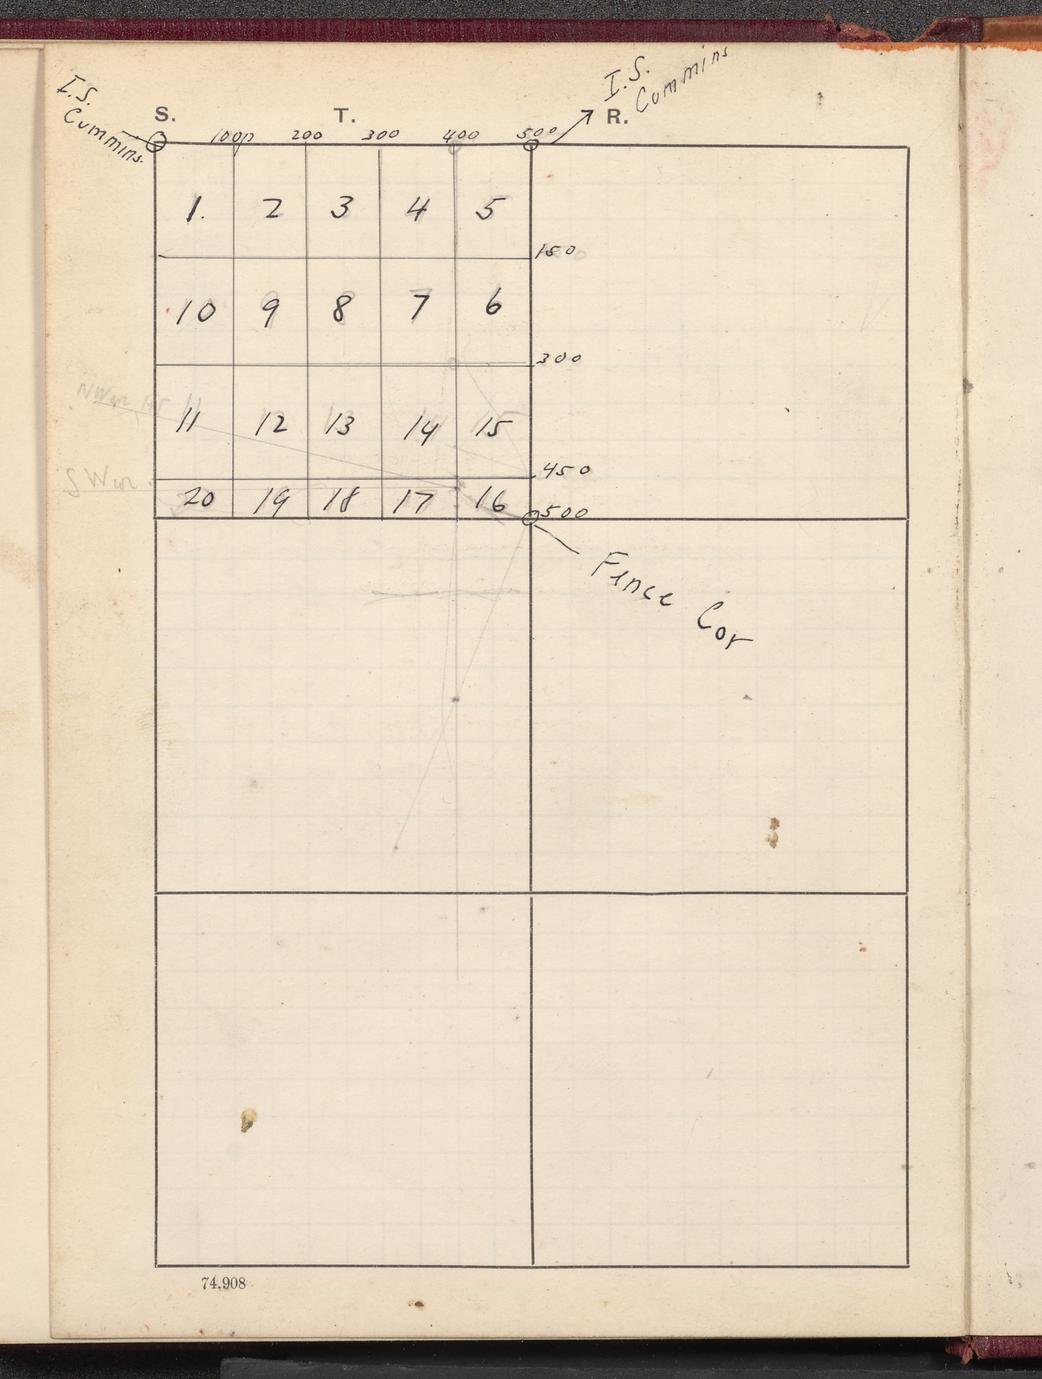 I.S.
Cummins
I.S.
Cummins
S. T. R.
100 200 300 400 500
1. 2 3 4 5
150
10 9 8 7 6
300
11 12 13 14 15
450
20 19 18 17 16
500
Fence Cor
74,908